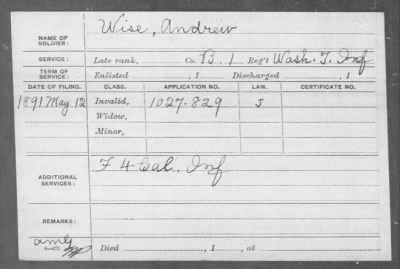 NAME OF SOLDIER: Wise, Andrew
SERVICE: Late rank, Co. B. 1 Reg't Wash. T. Inf
TERM OF SERVICE: Enlisted , 1 Discharged , 1
DATE OF FILING. CLASS. APPLICATION NO. LAW. CERTIFICATE NO.
1891 May 12 Invalid, 1027.829 J
Widow,
Minor,
ADDITIONAL SERVICES: F 4 Cal. Inf
REMARKS:
Died , 1 , at